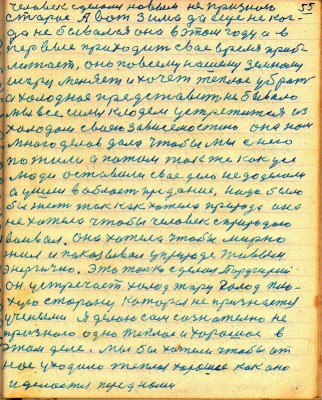 человек сделаны новым не признаго 55
старае А вот Зима да еще не ког-
да не бывался она в этом году а в
первые приходит свае время прибл
лижает, оно по всему нашему Земному
шару меняет и хочет теплое убрать
а холодное представить небывало
мы все силы кладем устретится из
холодом своею зависемостию она нам
много делов дала чтобы мы с него
пожили а потом также как усе
люди оставили свае дело недоделаном
а ушли в област предание, надо было
бы жит так как хотела природа она
не хотела чтобы человек с природою
воивал. Она хотела чтобы мирно
жил и показывал у природе живым
энергично. Это только сделал
он устречает холод жару Холод пло-
хую сторону которая не признается
учеными Я делаю сам сознательно не
признаю одно теплое и хорошое в
этом деле. Мы бы хотели чтобы от
нас уходило теплое хорошое как оно
и делается перед нами